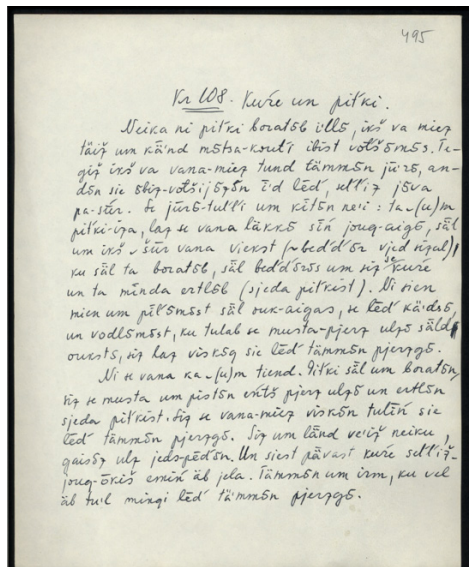 495
Nr 108. Kuŕe un pitki.
Neika ni pitki boratõb iļļõ, ikš va miez
täiž um känd mõtsa-kouťi ibist votšõmõs. Te-
giž ikš va vana-miez tund tämmõn jūrõ, an-
dõn sie õbiz-votšijizõn īd lēd, sell'iz jõva
pa-stūr. Se jūrõ-tull'i um kitõn nei:
pitki-iza, laz se vana läkkõ sīń joug-aigõ, säl
um ikš vana viekst
ku säl ta boratõb, säl bedd'õrõs um siz kuŕe
un ta minda ertlõb (sjeda pitkist). Ni sien
mien um säl ouk-aigas, se lēd kä'dsõ,
un vodlõmõst, ku tulab se musta-pjerz ulzõ säldõ
ouksts, siz laz viskõg sie lēd tämmõn pjerzgõ.
Ni se vana tund. Pitki säl um boratõn,
siz se musta um pistõn pjerz ulzõ un ertlõn
sjeda pitkist. Siz se vana-miez viskõn tulīń sie
lēd tämmõn pjerzgõ. Siz um länd neiku
gaisõz ulz Un siest pävast kuŕe sell'iz-
joug-õkiš emiń äb jela. Tämmõn um irm, ku vel
äb tu'l mingi lēd tämmõn pjerzgõ.